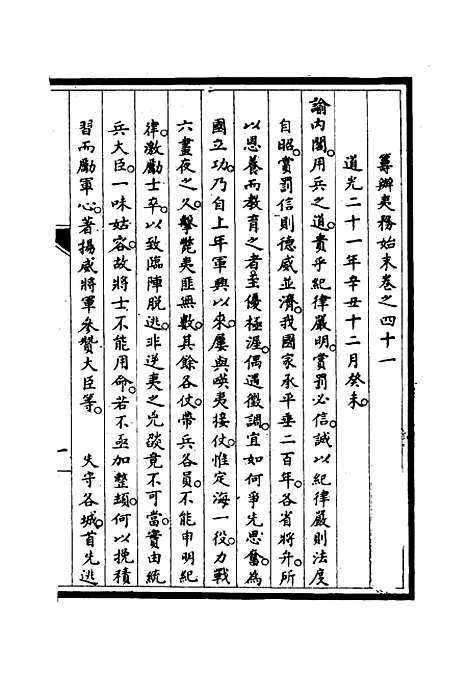 籌辦夷務始末卷之四十一
道光二十一年辛丑十二月癸未。
諭內閣。用兵之道。貴乎紀律嚴明。賞罰必信。誠以紀律嚴則法度
自昭。賞罰信則德威並濟。我國家承平垂二百年。各省將弁。所
以恩養而教育之者。至優極渥。偶遇徵調。宜如何爭先思奮。為
國立功。乃自上年軍興以來。屢與𠸄夷接仗。惟定海一役。力戰
六晝夜之久。擊斃夷匪無數。其餘各仗。帶兵各員。不能申明紀
律。激勵士卒。以致臨陣脫逃。非逆夷之兇燄竟不可當。實由統
兵大臣。一味姑容。故將士不能用命。若不亟加整頓。何以挽積
習而勵軍心。著揚威將軍參贊大臣等。　失守各城。首先逃